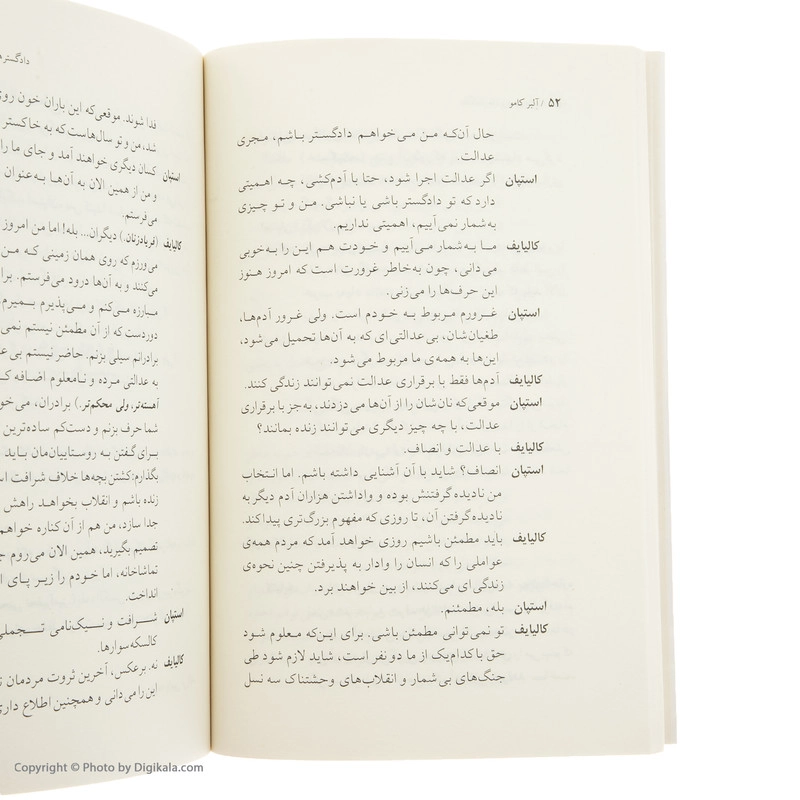 ۵۲ / آلبر کامو
حال آن‌که من می‌خواهم دادگستر باشم، مجری
عدالت.
استپان اگر عدالت اجرا شود، حتا با آدم‌کشی، چه اهمیتی
دارد که تو دادگستر باشی یا نباشی. من و تو چیزی
به‌شمار نمی‌آییم، اهمیتی نداریم.
کالیایف ما به‌شمار می‌آییم و خودت هم این را به‌خوبی
می‌دانی، چون به‌خاطر غرورت است که امروز هنوز
این حرف‌ها را می‌زنی.
استپان غرورم مربوط به خودم است. ولی غرور آدم‌ها،
طغیان‌شان، بی‌عدالتی‌ای که به آن‌ها تحمیل می‌شود،
این‌ها به همه‌ی ما مربوط می‌شود.
کالیایف آدم‌ها فقط با برقراری عدالت نمی‌توانند زندگی کنند.
استپان موقعی‌که نان‌شان را از آن‌ها می‌دزدند، به‌جز با برقراری
عدالت، با چه چیز دیگری می‌توانند زنده بمانند؟
کالیایف با عدالت و انصاف.
استپان انصاف؟ شاید با آن آشنایی داشته باشم. اما انتخاب
من نادیده‌گرفتنش بوده و واداشتن هزاران آدم دیگر به
نادیده‌گرفتن آن، تا روزی که مفهوم بزرگ‌تری پیدا کند.
کالیایف باید مطمئن باشیم روزی خواهد آمد که مردم همه‌ی
عواملی را که انسان را وادار به پذیرفتن چنین نحوه‌ی
زندگی‌ای می‌کنند، از بین خواهند برد.
استپان بله، مطمئنم.
کالیایف تو نمی‌توانی مطمئن باشی. برای این‌که معلوم شود
حق با کدام‌یک از ما دو نفر است، شاید لازم شود طی
جنگ‌های بی‌شمار و انقلاب‌های وحشتناک سه نسل
فدا شوند. موقعی‌که این باران خون روی
شد، من و تو سال‌هاست که به خاکستر
کسان دیگری خواهند آمد و جای ما را
استپان و من از همین الان به آن‌ها به‌عنوان
می‌فرستم.
کالیایف (فریادزنان.) دیگران... بله! اما من امروز
می‌ورزم که روی همان زمینی که من
می‌کنند و به آن‌ها درود می‌فرستم. برا
مبارزه می‌کنم و می‌پذیرم بمیرم
دوردست که از آن مطمئن نیستم نمی
برادرانم سیلی بزنم. حاضر نیستم بی‌ع
به عدالتی مرده و نامعلوم اضافه ک
آهسته‌تر، ولی محکم‌تر.) برادران، می‌خو
شما حرف بزنم و دست‌کم ساده‌ترین
برای گفتن به روستاییان‌مان باید
بگذارم: کشتن بچه‌ها خلاف شرافت اس
زنده باشم و انقلاب بخواهد راهش
جدا سازد، من هم از آن کناره خواهم
تصمیم بگیرید، همین الان می‌روم ج
تماشاخانه، اما خودم را زیر پای ا
انداخت.
استپان شرافت و نیک‌نامی تجملی
کالسکه‌سوارها.
کالیایف نه. برعکس، آخرین ثروت مردمان
این را می‌دانی و همچنین اطلاع داری
Copyright © Photo by Digikala.com